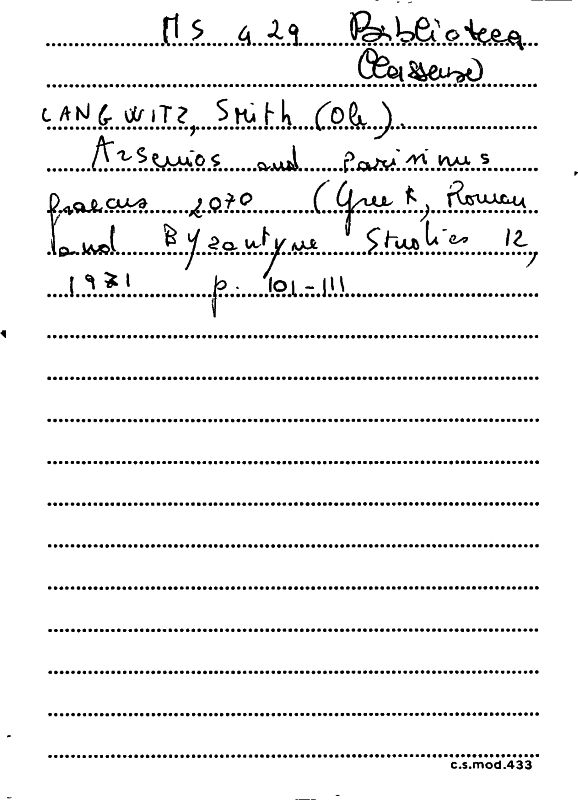 MS 429 Biblioteca
Classense
LANGWITZ, Smith (Ole).
Arsenios and Parisinus
graecus 2070 (Greek, Roman
and Byzantyne Studies 12,
1971 p. 101-111
c.s.mod.433